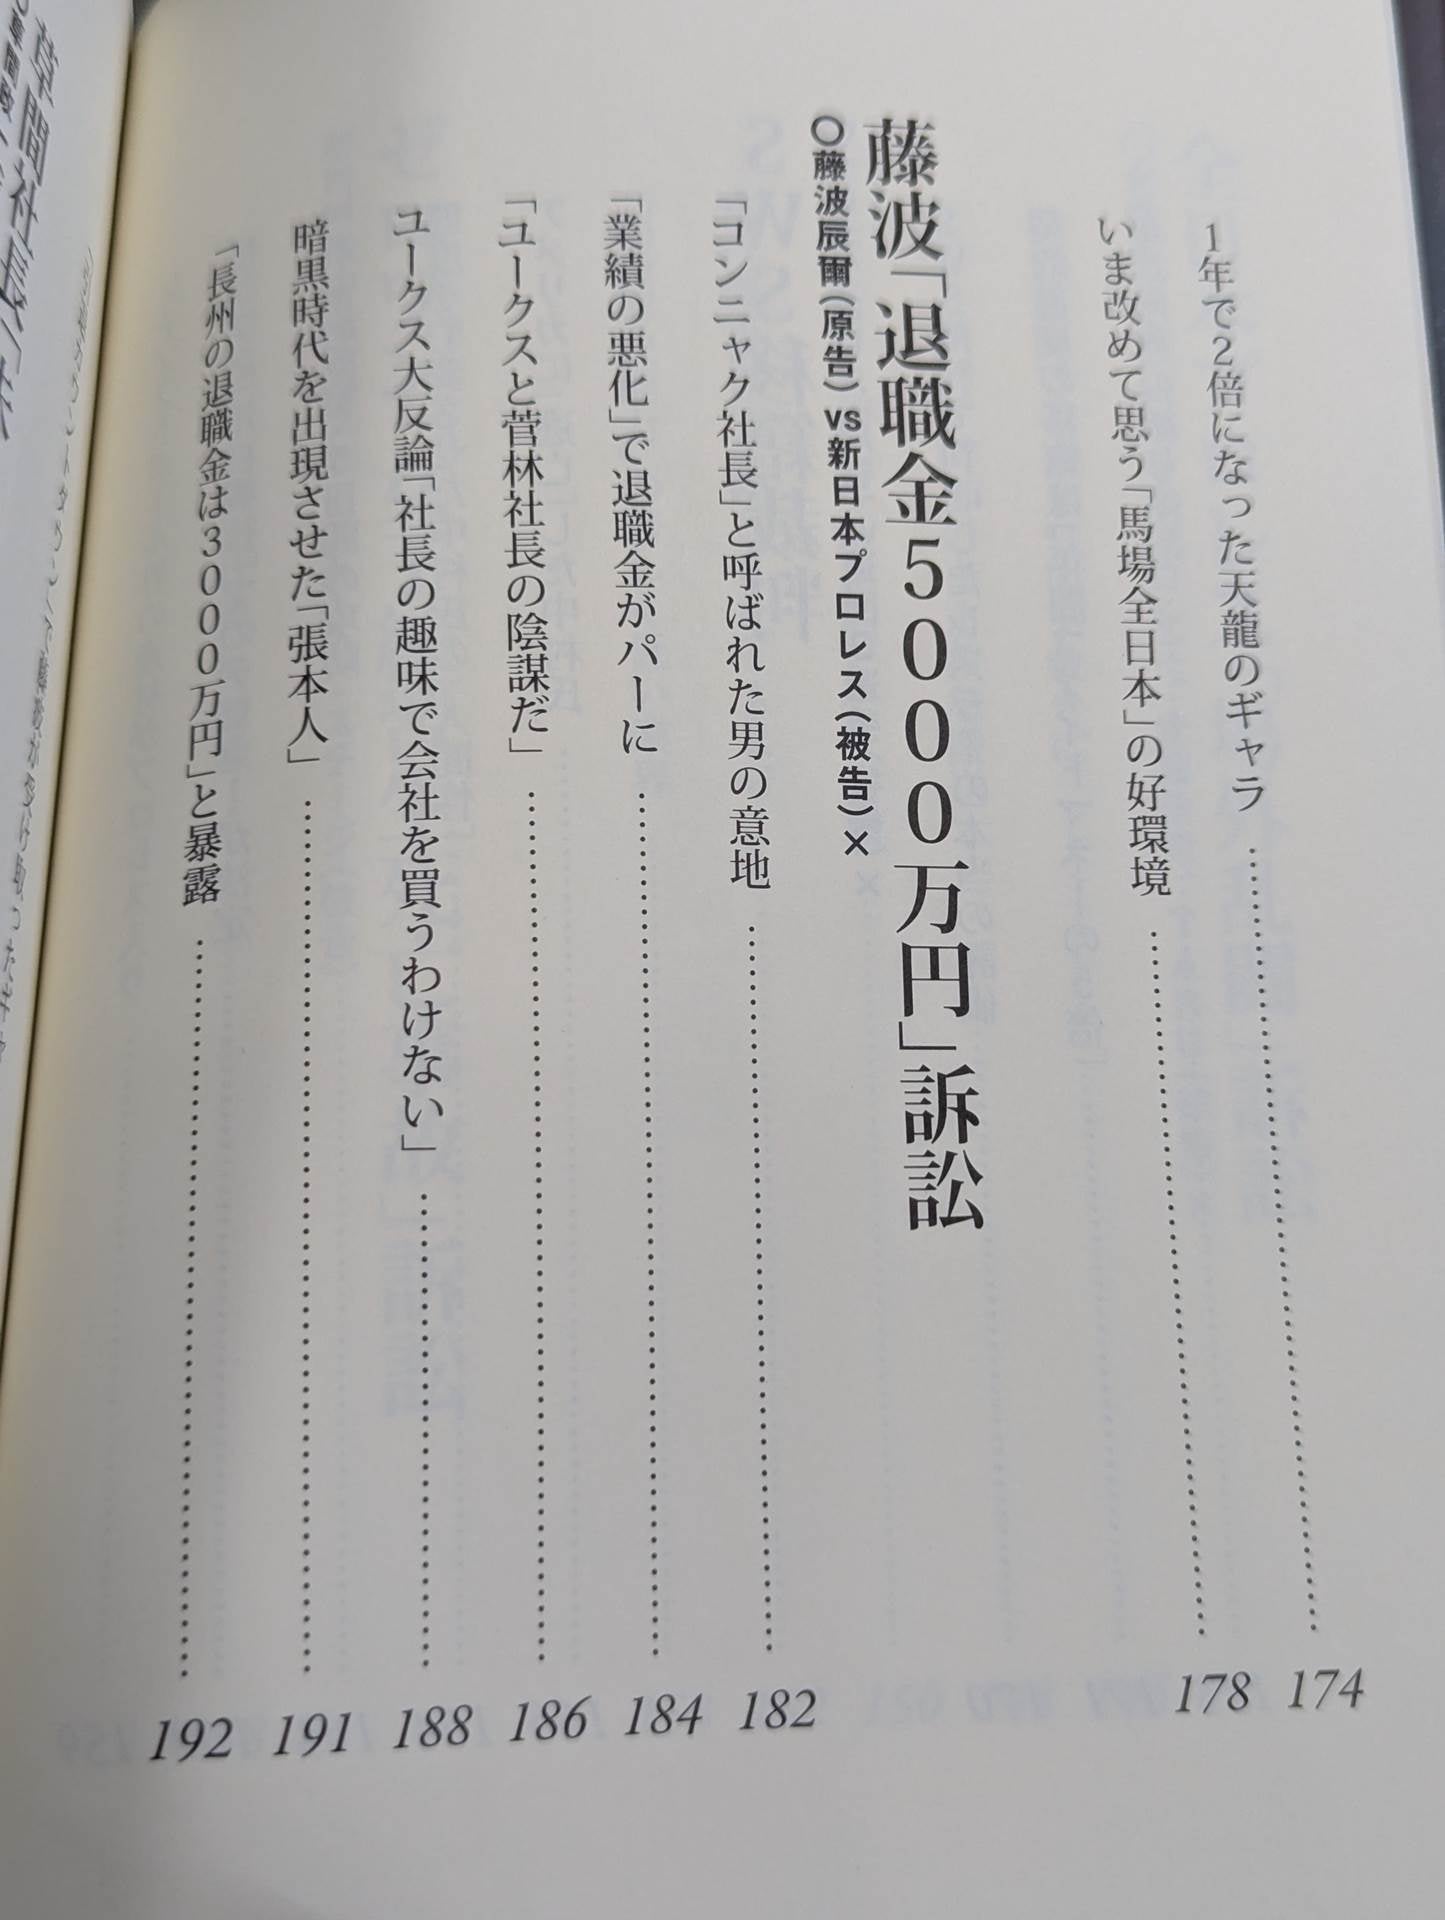 1年で2倍になった天龍のギャラ……174
いま改めて思う「馬場全日本」の好環境……178
藤波「退職金5000万円」訴訟
○藤波辰爾(原告)vs新日本プロレス(被告)×
「コンニャク社長」と呼ばれた男の意地……182
「業績の悪化」で退職金がパーに……184
「ユークスと菅林社長の陰謀だ」……186
ユークス大反論「社長の趣味で会社を買うわけない」……188
暗黒時代を出現させた「張本人」……191
「長州の退職金は3000万円」と暴露……192
草間社長「